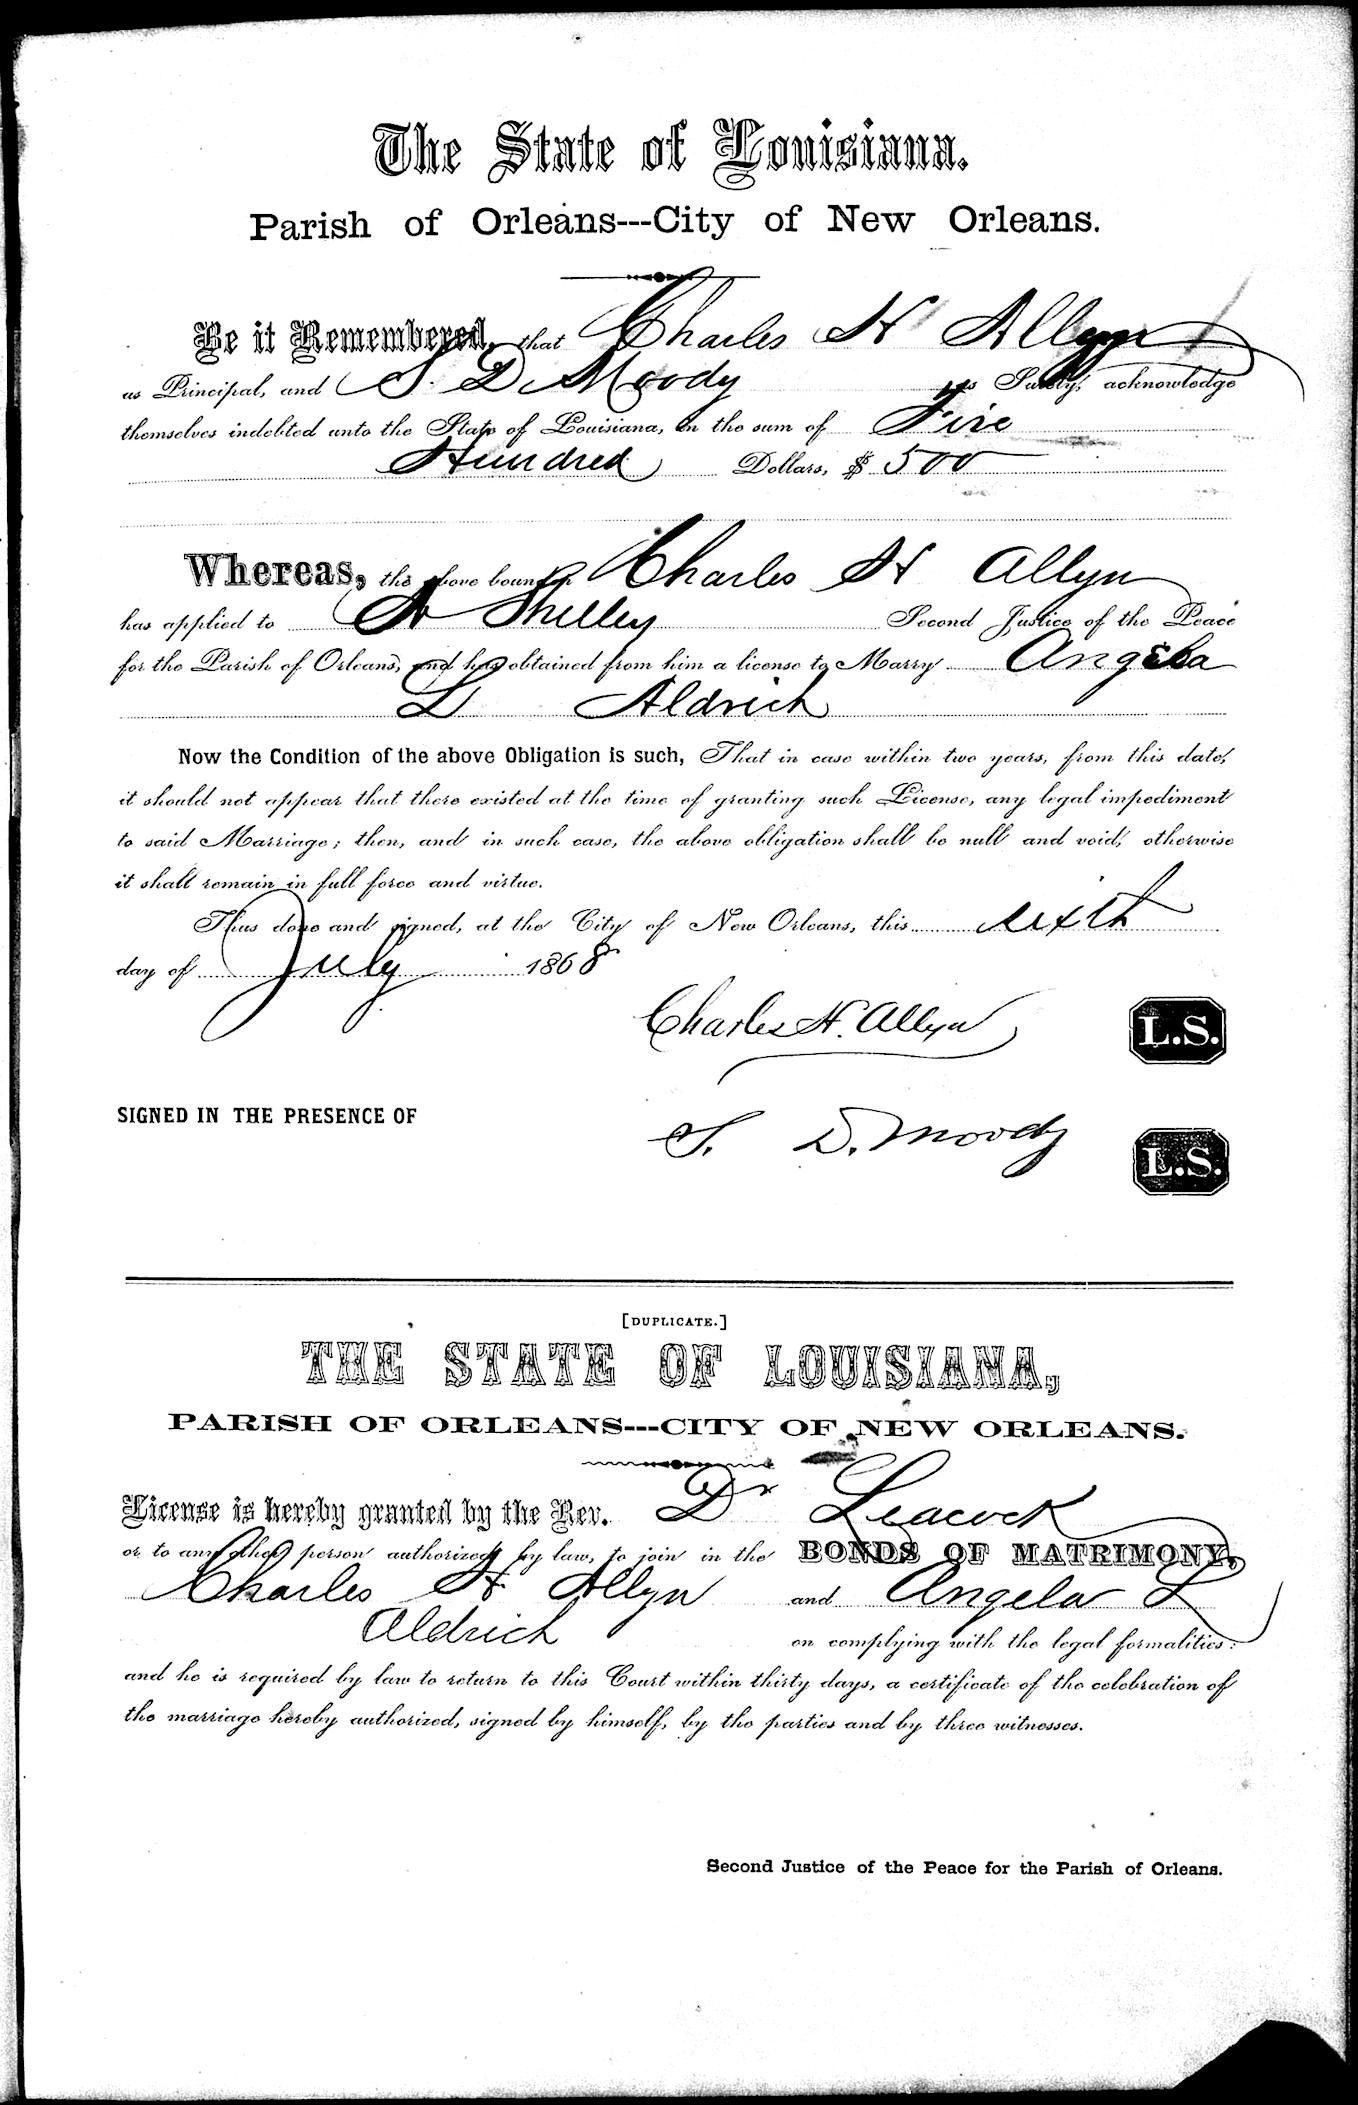 The State of Louisiana.
Parish of Orleans---City of New Orleans.
Be it Remembered, that Charles H Allyn
as Principal, and S. D Moody as Surety, acknowledge
themselves indebted unto the State of Louisiana, in the sum of Five
Hundred Dollars, $ 500
Whereas, the above bounden Charles H Allyn
has applied to H Shelley Second Justice of the Peace
for the Parish of Orleans, and has obtained from him a license to Marry Angela
L Aldrich
Now the Condition of the above Obligation is such, That in case within two years, from this date,
it should not appear that there existed at the time of granting such License, any legal impediment
to said Marriage; then, and in such case, the above obligation shall be null and void, otherwise
it shall remain in full force and virtue.
Thus done and signed, at the City of New Orleans, this sixth
day of July 1868
Charles H. Allyn L.S.
SIGNED IN THE PRESENCE OF
S. D. Moody L.S.
[DUPLICATE.]
THE STATE OF LOUISIANA,
PARISH OF ORLEANS---CITY OF NEW ORLEANS.
License is hereby granted by the Rev. Dr Leacock
or to any other person authorized by law, to join in the BONDS OF MATRIMONY,
Charles H Allyn and Angela L
Aldrich on complying with the legal formalities:
and he is required by law to return to this Court within thirty days, a certificate of the celebration of
the marriage hereby authorized, signed by himself, by the parties and by three witnesses.
Second Justice of the Peace for the Parish of Orleans.